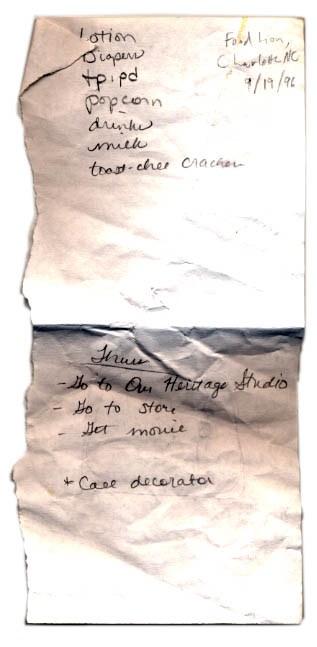 Lotion
Diapers
tpipd
popcorn
drinks
milk
toast-chee crackers
Food Lion,
Charlotte, NC
9/19/96
Thurs
- Go to Our Heritage Studio
- Go to store
- Get movie
* Call decorator